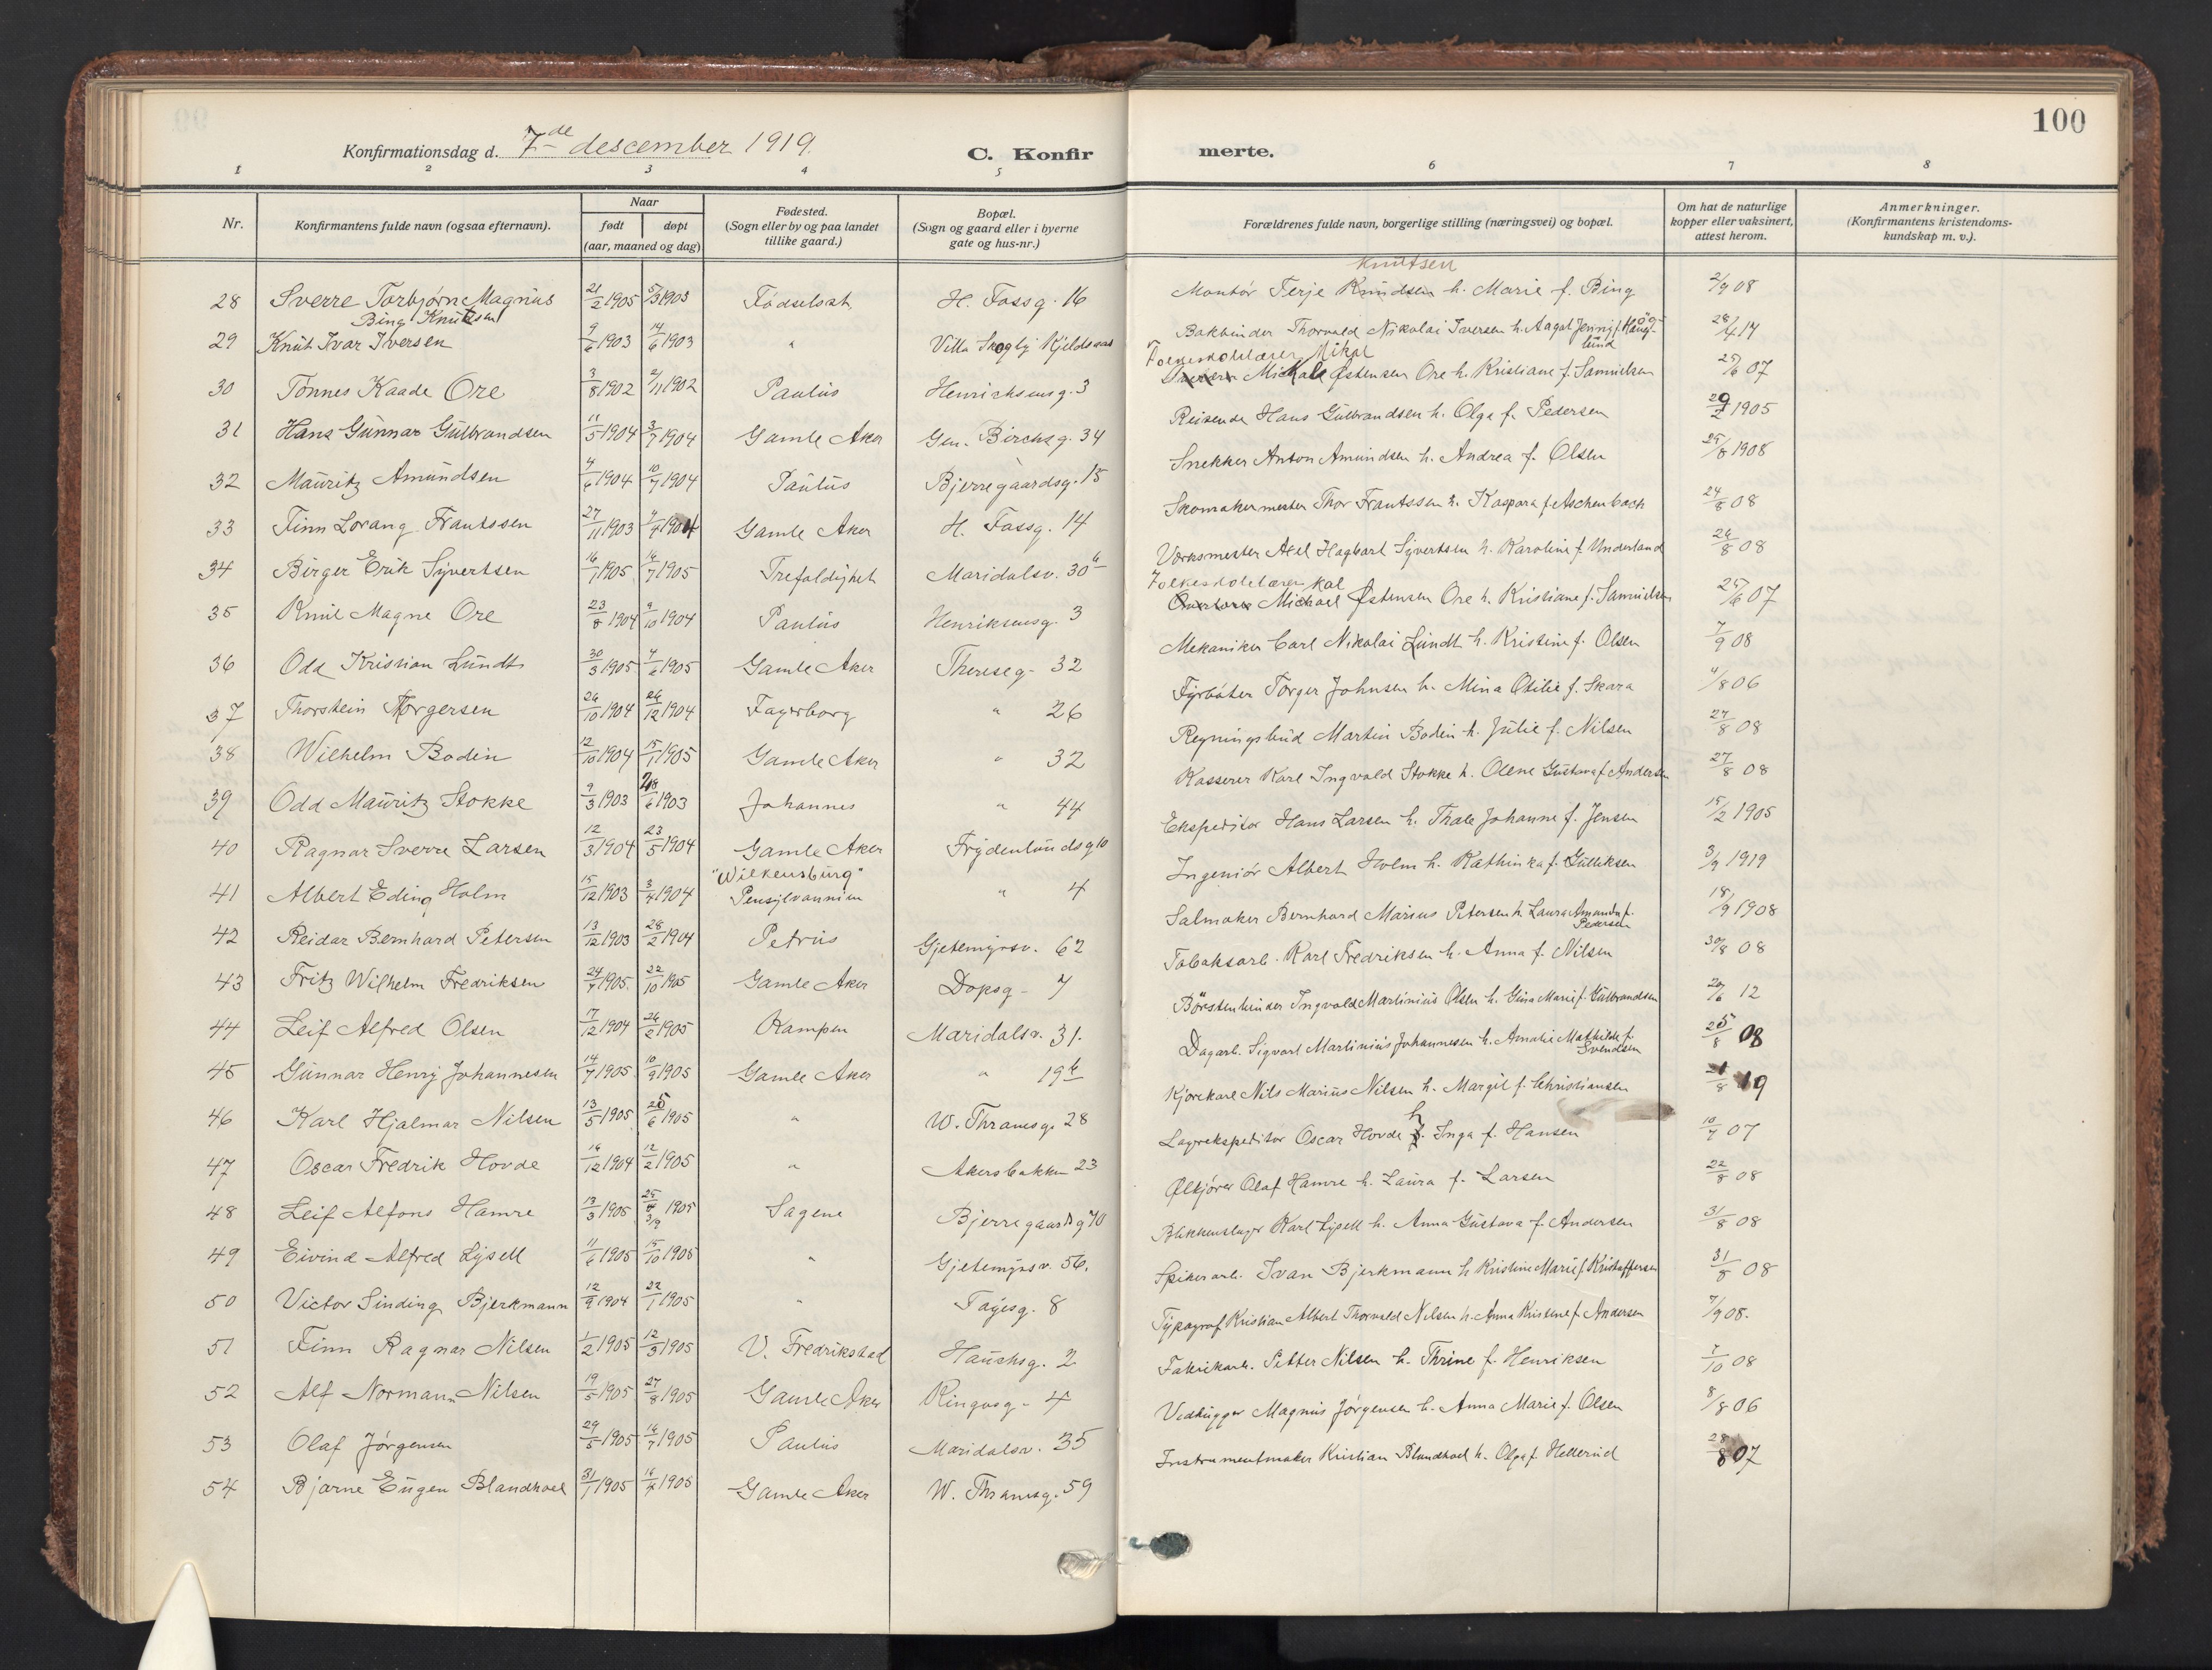 100
Konfirmationsdag d. 7de descember 1919.
C. Konfirmerte.
1 2 3 4 5 6 7 8
Nr.
Konfirmantens fulde navn (ogsaa efternavn).
Naar
født døpt
(aar, maaned og dag)
Fødested.
(Sogn eller by og paa landet
tillike gaard.)
Bopæl.
(Sogn og gaard eller i byerne
gate og hus-nr.)
Forældrenes fulde navn, borgerlige stilling (næringsvei) og bopæl.
Om hat de naturlige
kopper eller vaksinert,
attest herom.
Anmerkninger.
(Konfirmantens kristendoms-
kundskap m. v.).
Knutsen
28 Sverre Torbjørn Magnus 21/2 1905 H. Fossg. 16 Montør Terje Knudsen h. Marie f. Bing 2/9 08
Bing Knutsen
29 Knut Ivar Iversen 9/6 1903 14/6 1903 " Villa Skogly Kjeldsaas Bokbinder Thorvald Nikolai Iversen h. Aagot Jenny f. Haug-
lund
Folkeskolelærer Mikal
30 Tønnes Kaade Ore 3/8 1902 2/11 1902 Paulus Henrichsensg. 3 Østensen Ore h. Kristiane f. Samuelsen 25/6 07
31 Hans Gunnar Gulbrandsen 11/5 1904 3/7 1904 Gamle Aker Gen. Birchsg. 34 Reisende Hans Gulbrandsen h. Olga f. Pedersen 1905
32 Mauritz Amundsen 4/6 1904 10/7 1904 Paulus Bjerregaardsg. 15 Snekker Anton Amundsen h. Andrea f. Olsen 25/8 1908
33 Finn Lorang Frantssen 27/11 1903 1904 Gamle Aker H. Fossg. 14 Skomakermester Thor Frantssen h. Kaspara f. Aschenbach 24/8 08
34 Birger Erik Syvertsen 16/1 1905 16/7 1905 Trefoldighet Maridalsv. 30 Verksmester Axel Hagbart Syvertsen h. Karoline f. Underland 26/8 08
Folkeskolelærer kal
35 Knut Magne Ore 23/8 1904 9/10 1904 Paulus Henriksensg. 3 Michael Østensen Ore h. Kristiane f. Samuelsen 25/6 07
36 Odd Kristian Lundt 30/3 1905 1905 Gamle Aker Thereseg. 32 Mekaniker Carl Nikolai Lundt h. Kristine f. Olsen 7/9 08
37 Thorstein Torgersen 26/10 1904 26/12 1904 Fagerborg " 26 Fyrbøter Torger Johnsen h. Mina Otilie f. Skara 4/8 06
38 Wilhelm Bodin 12/10 1904 15/1 1905 Gamle Aker " 32 Regningsbud Martin Bodin h. Julie f. Nilsen 27/8 08
39 Odd Mauritz Stokke 9/3 1903 28/6 1903 Johannes " 44 Kasserer Karl Ingvald Stokke h. Olene Gustava f. Andersen 27/8 08
40 Ragnar Sverre Larsen 12/3 1904 23/5 1904 Gamle Aker Frydenlundsg 10 Ekspeditør Hans Larsen h. Thale Johanne f. Jensen 15/2 1905
"Wilkensburg"
41 Albert Eding Holm 15/12 1903 3/4 1904 Pensylvannien " 4 Ingeniør Albert Holm h. Kathinka f. Gulliksen 3/9 1919
42 Reidar Bernhard Petersen 13/12 1903 28/2 1904 Petrus Gjetemyrsv. 62 Salmaker Bernhard Marius Petersen h. Laura Amanda f. 18/9 1908
Pedersen
43 Fritz Wilhelm Fredriksen 1905 22/10 1905 Gamle Aker Dopsg - 7 Tobaksarb. Karl Fredriksen h. Anna f. Nilsen 30/8 08
44 Leif Alfred Olsen 17/12 1904 26/2 1905 Kampen Maridalsv. 31. Børstenbinder Ingvald Martinius Olsen h. Gina Marie f. Gulbrandsen 20/6 12
45 Gunnar Henry Johannesen 14/7 1905 10/9 1905 Gamle Aker " 19 Dagarb. Sigvart Martinius Johannesen h. Amalie Mathilde f. 25/8 08
Svendsen
46 Karl Hjalmar Nilsen 13/5 1905 25/6 1905 " W. Thranesg. 28 Kjørekarl Nils Marius Nilsen h. Margit f. Christiansen 19
47 Oscar Fredrik Hovde 16/12 1904 12/2 1905 " Akersbakken 23 Lagerekspeditør Oscar Hovde h Inga f. Hansen 10/7 07
48 Leif Alfons Hamre 13/3 1905 1905 Sagene Bjerregaardsg 70 Ølkjører Olaf Hamre h. Laura f. Larsen 22/8 08
49 Eivind Alfred Lysell 11/6 1905 15/10 1905 " Gjetemyrsv. 56. Blikkenslager Karl Lysell h. Anna Gustava f. Andersen 31/8 08
50 Victor Sinding Bjerkmann 12/9 1904 22/1 1905 " Fayesg. 8 Spikerarb. Ivan Bjerkmann h Kristine Marie f. Kristoffersen 31/8 08
51 Finn Ragnar Nilsen 1/2 1905 12/3 1905 V. Fredrikstad Hauchsg. 2 Typograf Kristian Albert Thorvald Nilsen h. Anna Kristine f. Andersen 7/9 08.
52 Alf Normann Nilsen 19/5 1905 27/8 1905 Gamle Aker Ringvsg - 4 Fabrikarb. Petter Nilsen h. Thrine f. Henriksen 7/10 08
53 Olaf Jørgensen 29/5 1905 16/7 1905 Paulus Maridalsv. 35 Vedhugger Magnus Jørgensen h. Anna Marie f. Olsen 8/8 06
54 Bjarne Eugen Blandhoel 31/1 1905 1905 Gamle Aker W. Thranesg. 59 Instrumentmaker Kristian Blandhoel h. Olga f. Hellerud 28/8 07